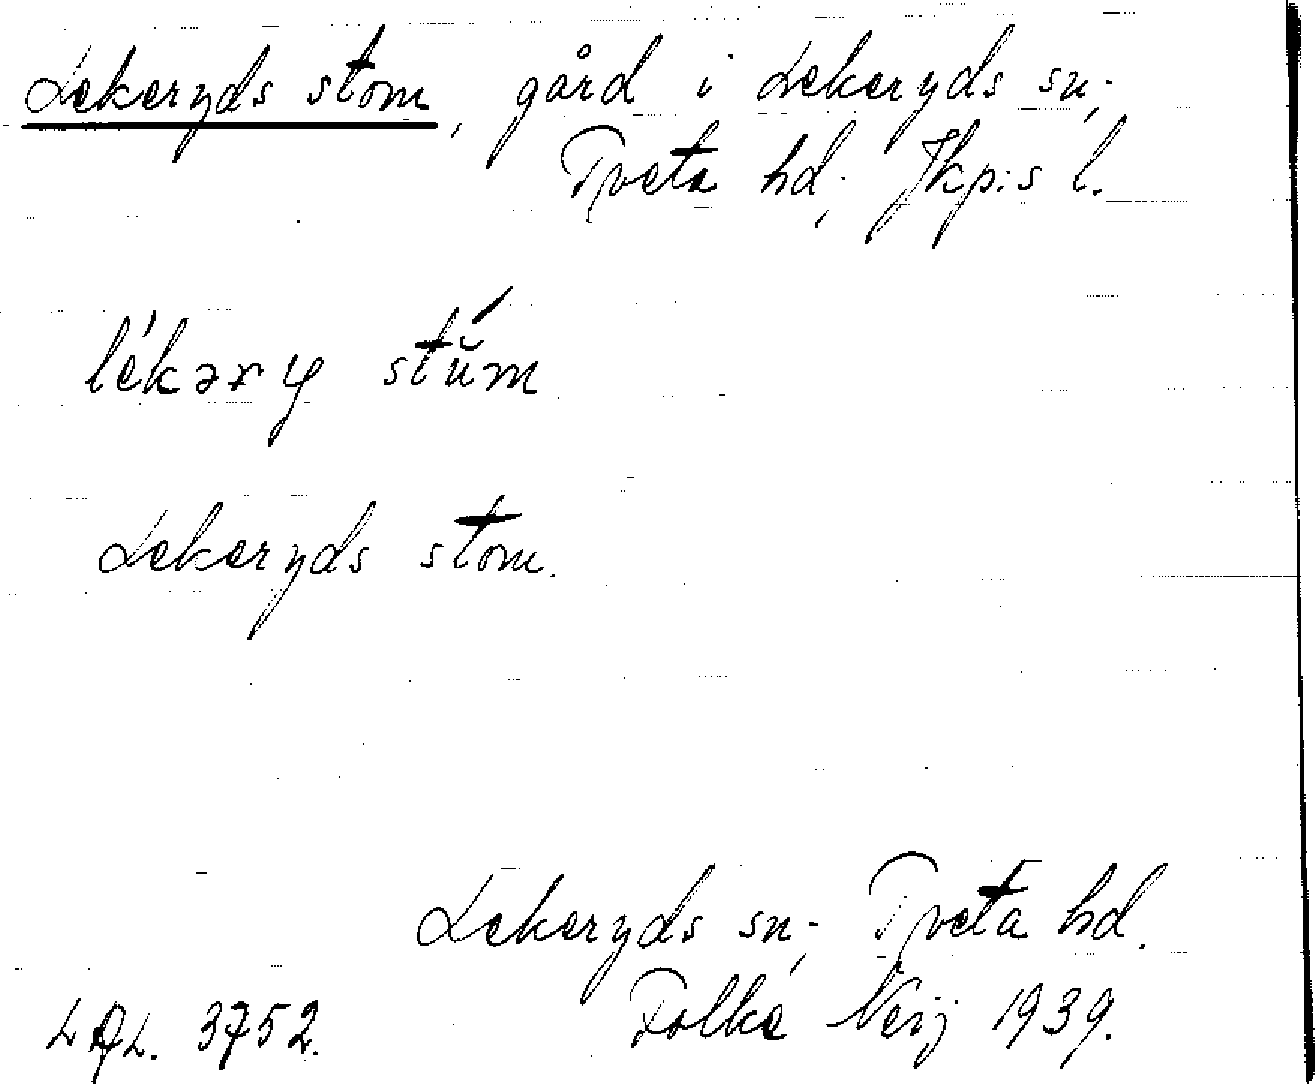 Lekeryds stom, gård i Lekeryds sn;
Tveta hd; Jkp:s l.
lékəry stŭm
Lekeryds stom.
Lekeryds sn; Tveta hd.
L A L. 3752. Folke Neij 1939.